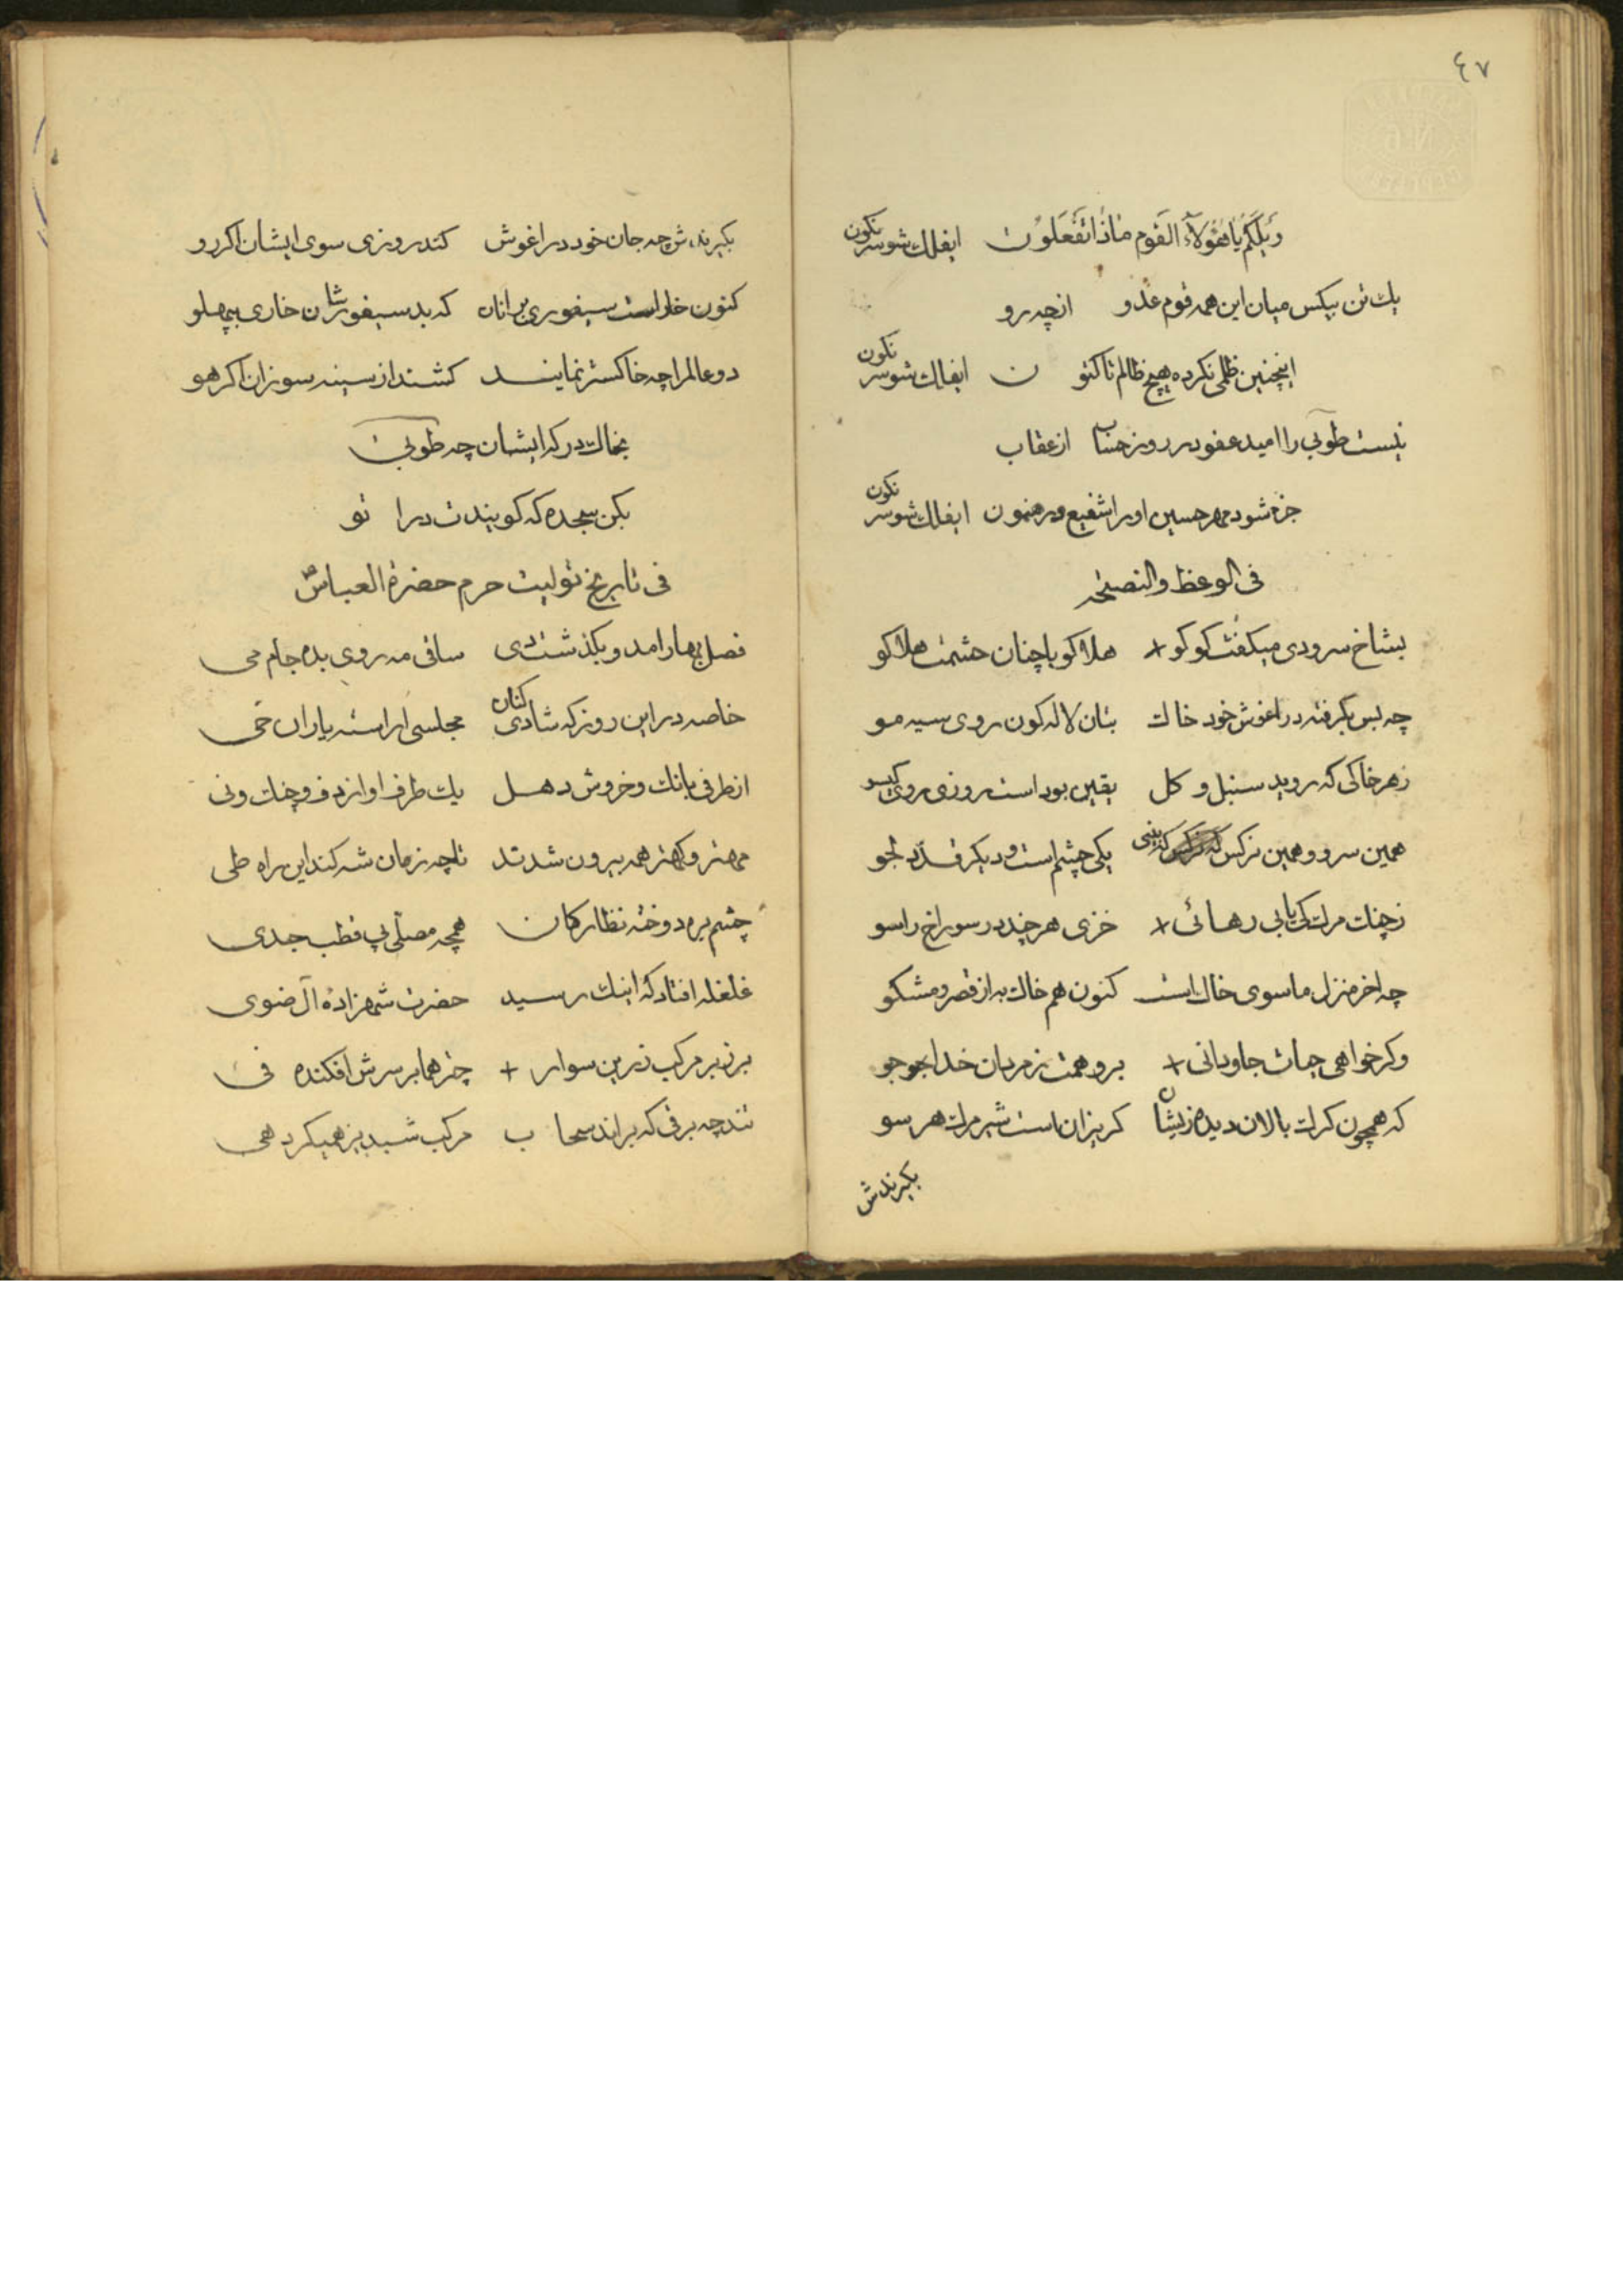 ٤٧
وَیلَکُم یا هٰؤُلآءِ القَوم ماذا تَفعَلون ایفلك شو سر نکون
یك تن بیکس میان این همه قوم عدو انچه رو
اینچنین ظلمی نکرده هیچ ظالم تا کنو ن ایفلك شو سر نکون
نیست طوبی را امید عفو در روز حساب از عقاب
جزء شود مهر حسین او را شفیع و رهنمون ایفلك شو سر نکون
فی الوعظ والنصیحه
بشاخ سرودی میکفت کوکو + هلاکو با چنان حشمت هلاکو
چه بس بکرفته در اغوش خود خاك بتان لاله کون روی سیه مو
زهر خاکی که روید سنبل و کل یقین بود است روزی روی کیسو
همین سرو و همین نرکس که بینی یکی چشم است و دیکر قدّ دلجو
زچنك مرك کی یابی رهائی + خزی هر چند در سوراخ راسو
چه اخر منزل ما سوی خاك است کنون هم خاك به از قصر و مشکو
وکر خواهی حیات جاودانی + برو همت ز مردان خدا جو
که همچون کرك بالان دیده زیشان کریزان است شیر مرك هر سو
بکیرندش
بکیرندش چه جان خود در اغوش کند روزی سوی ایشان اکر رو
کنون خار است سیفوری بر انان که بد سیفورشان خاری بپهلو
دو عالم را چه خاکستر نمایند کشند از سینه سوزان اکر هو
بخاك درکه ایشان چه طوبی
بکن سجده که کویندت درا تو
فی تاریخ تولیت حرم حضرة العباس ع
فصل بهار امد و بکذشت دی ساقی مه روی بده جام می
خاصه در این روز که شادی کنان مجلسی اراسته یاران حی
از طرفی بانك و خروش دهل یك طرف اواز دف و چنك و نی
مهتر و کهتر همه بیرون شدند تا چه زمان شه کند این راه طی
چشم بره دوخته نظارکان همچه مصلّی پی قطب جدی
غلغله افتاد که اینك رسید حضرت شهزادهٔ آل ضوی
بر زبر مرکب زرین سوار + چتر هما بر سرش افکنده فی
تند چه برقی که براند سحا ب مرکب شبدیز همیکرد هی